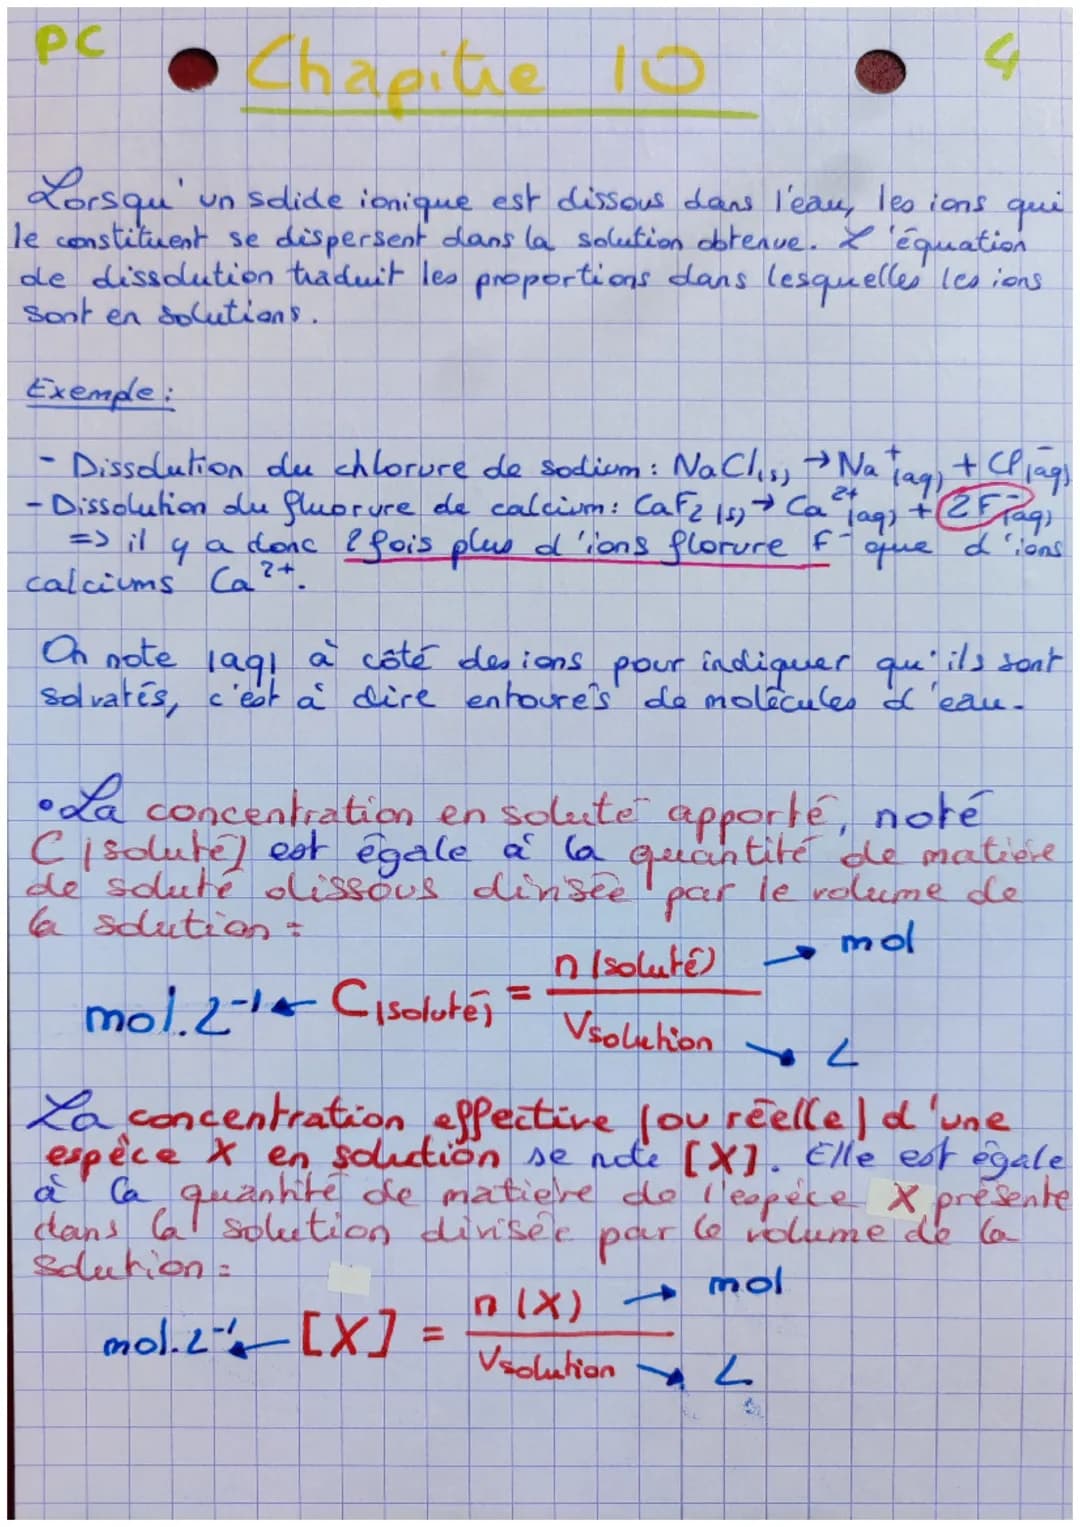 PC
Chapitre 10
4
Lorsqu'un solide ionique est dissous dans l'eau, les ions qui
le constituent se dispersent dans la solution obtenue. L'équation
de dissolution traduit les proportions dans lesquelles les ions
sont en solutions.
Exemple :
- Dissolution du chlorure de sodium : NaCl(s) → Na⁺(aq) + Cl⁻(aq)
- Dissolution du fluorure de calcium : CaF₂(s) → Ca²⁺(aq) + 2F⁻(aq)
=> il y a donc 2 fois plus d'ions florure F⁻ que d'ions
calciums Ca²⁺.
On note (aq) à côté des ions pour indiquer qu'ils sont
solvatés, c'est à dire entourés de molécules d'eau.
• La concentration en soluté apporté, noté
C(soluté) est égale à la quantité de matière
de soluté dissous divisée par le volume de
la solution :
mol.L⁻¹ ← C(soluté) = n(soluté) → mol
Vsolution → L
La concentration effective (ou réelle) d'une
espèce X en solution se note [X]. Elle est égale
à la quantité de matière de l'espèce X présente
dans la solution divisée par le volume de la
solution :
mol.L⁻¹ ← [X] = n(X) → mol
Vsolution → L